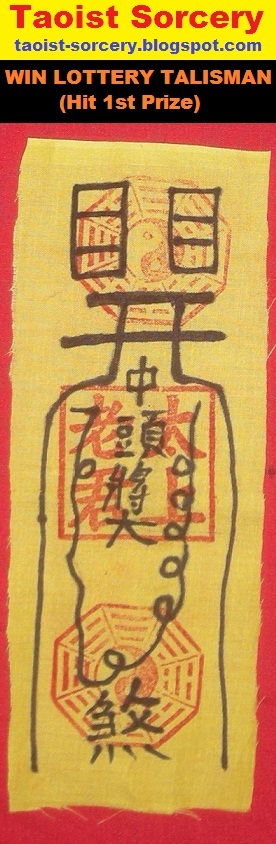 Taoist Sorcery
taoist-sorcery.blogspot.com
WIN LOTTERY TALISMAN
(Hit 1st Prize)
中
頭
奬
太上
老君
煞